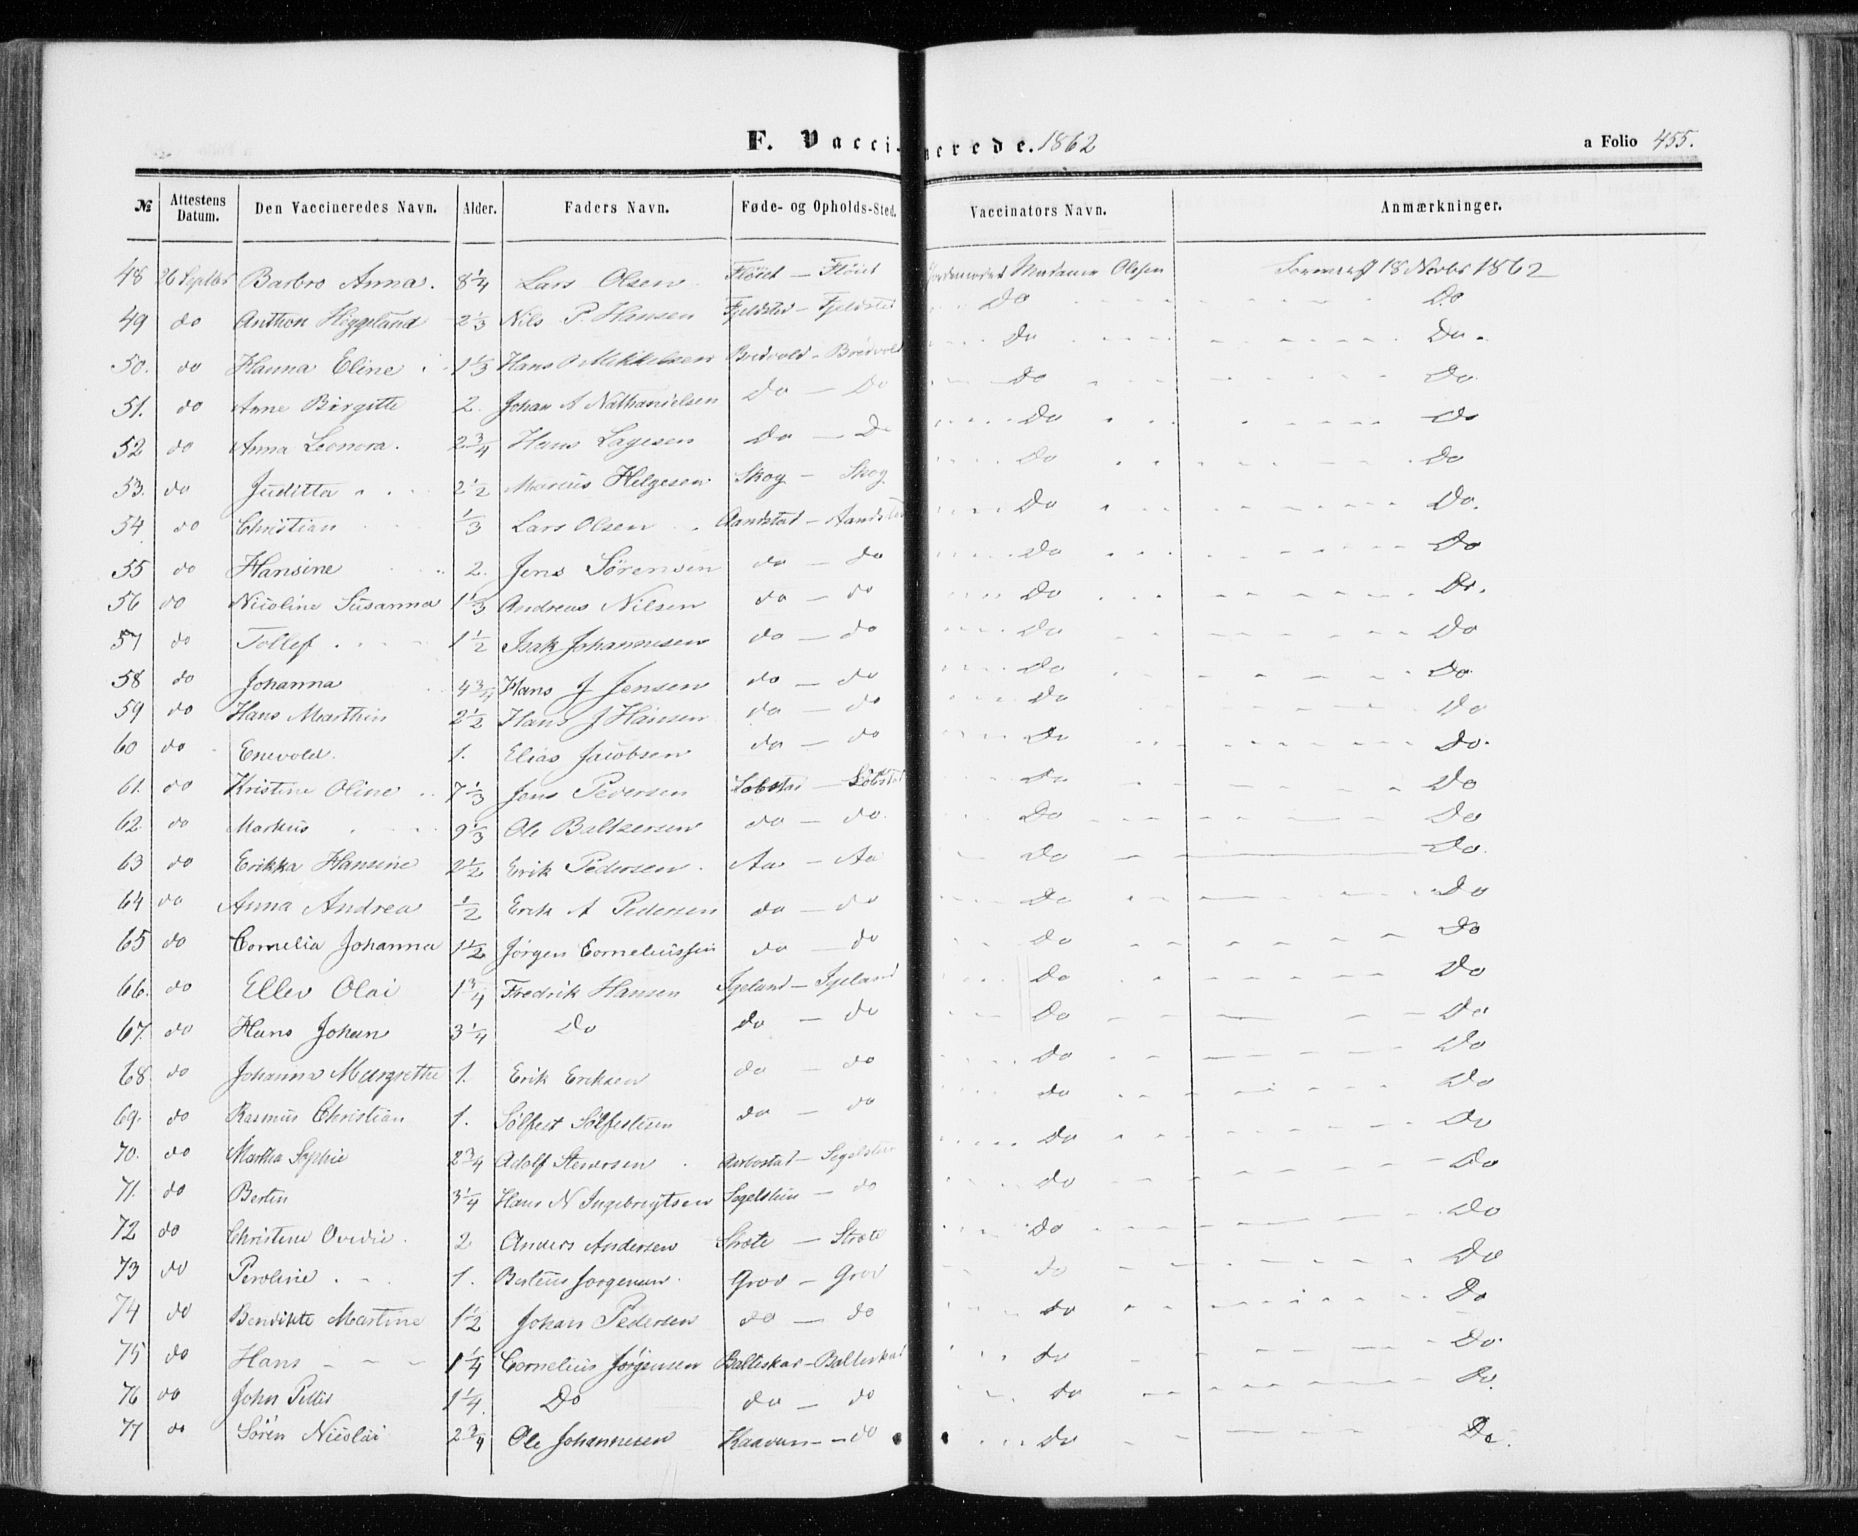 F. Vaccinerede. 1862 a Folio 455.
№ Attestens Datum. Den Vaccineredes Navn. Alder. Faders Navn. Føde- og Opholds-Sted. Vaccinators Navn. Anmærkninger.
48 26 Septbr Barbro Anna. 8 1/4 Lars Olsen Flöiet — Flöiet Madame Olssen 18 Novbr 1862
49 do Anthon 2 1/3 Nils P. Hansen Fjeldsted — Fjeldsted Do Do
50. do Hanna Eline 1 1/3 Hans O Mikkelsen Bredvold — Bredvold Do Do.
51. do Anne Birgitte 2. Johan A Nathanielsen Do — Do Do Do
52 do Anna Leonora. 2 3/4 Hans Lagesen Do — Do Do Do
53. do Juditta 2 1/2 Marcus Helgesen Skog — Skog Do Do
54. do Christian 1/3 Lars Olsen Aandstad — Aandstad Do Do.
55 do Hansine 2. Jens Sörensen do — do Do Do
56 do Nicoline Susanna 1 1/3 Andreas Nilsen do — do Do Do.
57 do Tollef 1 1/2 Isak Johannesen do — do Do Do
58 do Johanna 4 3/4 Hans J Jensen do — do Do Do
59 do Hans Marthin 2 1/2 Hans J Hansen do — do Do Do
60 do Enevold. 1. Elias Jacobsen do — do Do Do.
61. do Kristine Oline 7 1/3 Jens Pedersen Sobstad — Sobstad Do Do
62. do Markus 9 1/3 Ole Baltzersen do — do. Do Do
63 do Erikka Hansine 2 1/2 Erik Pedersen Aa — Aa Do Do.
64 do Anna Andrea 1/2 Erik A Pedersen do — do Do Do
65 do Cornelia Johanna 1 1/2 Jörgen Corneliussen do — do Do Do
66. do Ellev Olai 1 3/4 Fredrik Hansen Igeland — Igeland Do Do
67. do Hans Johan 3 1/4 Do do — do Do Do
68 do Johanna Margrethe 1. Erik Eriksen do — do Do Do
69. do Rasmus Christian 1. Sölfest Sölfestsen do — do do Do
70. do Martha Sophie 2 3/4 Adolf Steversen — Segelsten Do Do
71. do Bertin 3 1/4 Hans N Ingebrigtsen Segelsten — do do Do
72 do Christine Ovedie. 2 Anders Andersen Stræte — Stræte do Do
73 do Peroline 1. Berteus Jorgensen Grov — Grov do Do
74 do Bendikte Martine 1 1/2 Johan Pedersen do — do do Do
75 do Hans 1 1/4 Cornelius Jörgensen Balteskar — Balteskar do Do
76 do John Petter 1 1/4 Do do — do do Do.
77 do Sören Nicolai 2 3/4 Ole Johannesen — do do Do.